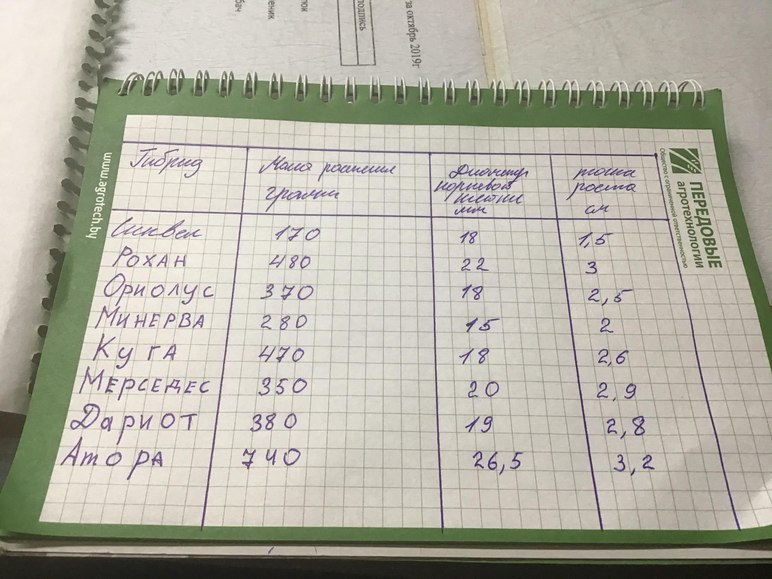 за октябрь 2019г
подпись
www.agrotech.by
ПЕРЕДОВЫЕ
агротехнологии
Общество с ограниченной ответственностью
Гибрид Масса растения грамм Диаметр корневой шейки мм точка роста см
Сиквел 170 18 1,5
РОХАН 480 22 3
ОРИОЛУС 370 18 2,5
МИНЕРВА 280 15 2
КУГА 470 18 2,6
МЕРСЕДЕС 350 20 2,9
ДАРИОТ 380 19 2,8
АТОРА 740 26,5 3,2